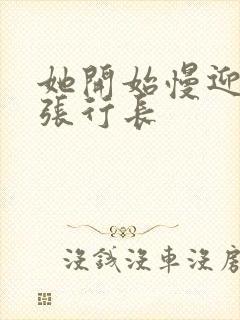 她開始慢迎合
張行長
沒錢沒車沒房